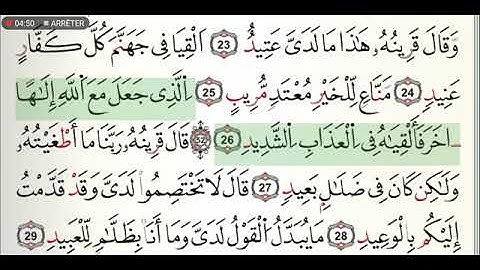 04:50 ARRÊTER
وَقَالَ قَرِينُهُۥ هَٰذَا مَا لَدَىَّ عَتِيدٌ 23 اَلْقِيَا فِى جَهَنَّمَ كُلَّ كَفَّارٍ
عَنِيدٍ 24 مَنَّاعٍ لِّلْخَيْرِ مُعْتَدٍ مُّرِيبٍ 25 اِلذِى جَعَلَ مَعَ اَللَّهِ إِلَٰهًا
اٰخَرَ فَأَلْقِيَٰهُ فِى اِلْعَذَابِ اِلشَّدِيدِ 26 52 قَالَ قَرِينُهُۥ رَبَّنَا مَا أَطْغَيْتُهُۥ
وَلَٰكِن كَانَ فِى ضَلَٰلٍۭ بَعِيدٍ 27 قَالَ لَا تَخْتَصِمُوا۟ لَدَىَّ وَقَدْ قَدَّمْتُ
إِلَيْكُم بِالْوَعِيدِ 28 مَا يُبَدَّلُ اُلْقَوْلُ لَدَىَّ وَمَا أَنَا۠ بِظَلَّٰمٍ لِّلْعَبِيدِ 29